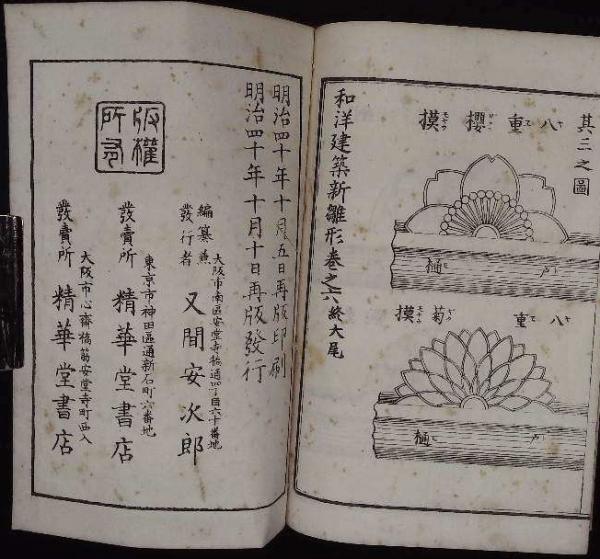 其三之圖
八重櫻摸
樋
戸
八重菊摸
樋
戸
和洋建築新雛形卷之六終大尾
明治四十年十月五日再版印刷
明治四十年十月十日再版發行
版權所有
編纂兼
發行者
大阪市南區安堂寺橋通四丁目六十番地
又間安次郎
東京市神田區通新石町六番地
發賣所 精華堂書店
大阪市心齋橋筋安堂寺町西入
發賣所 精華堂書店